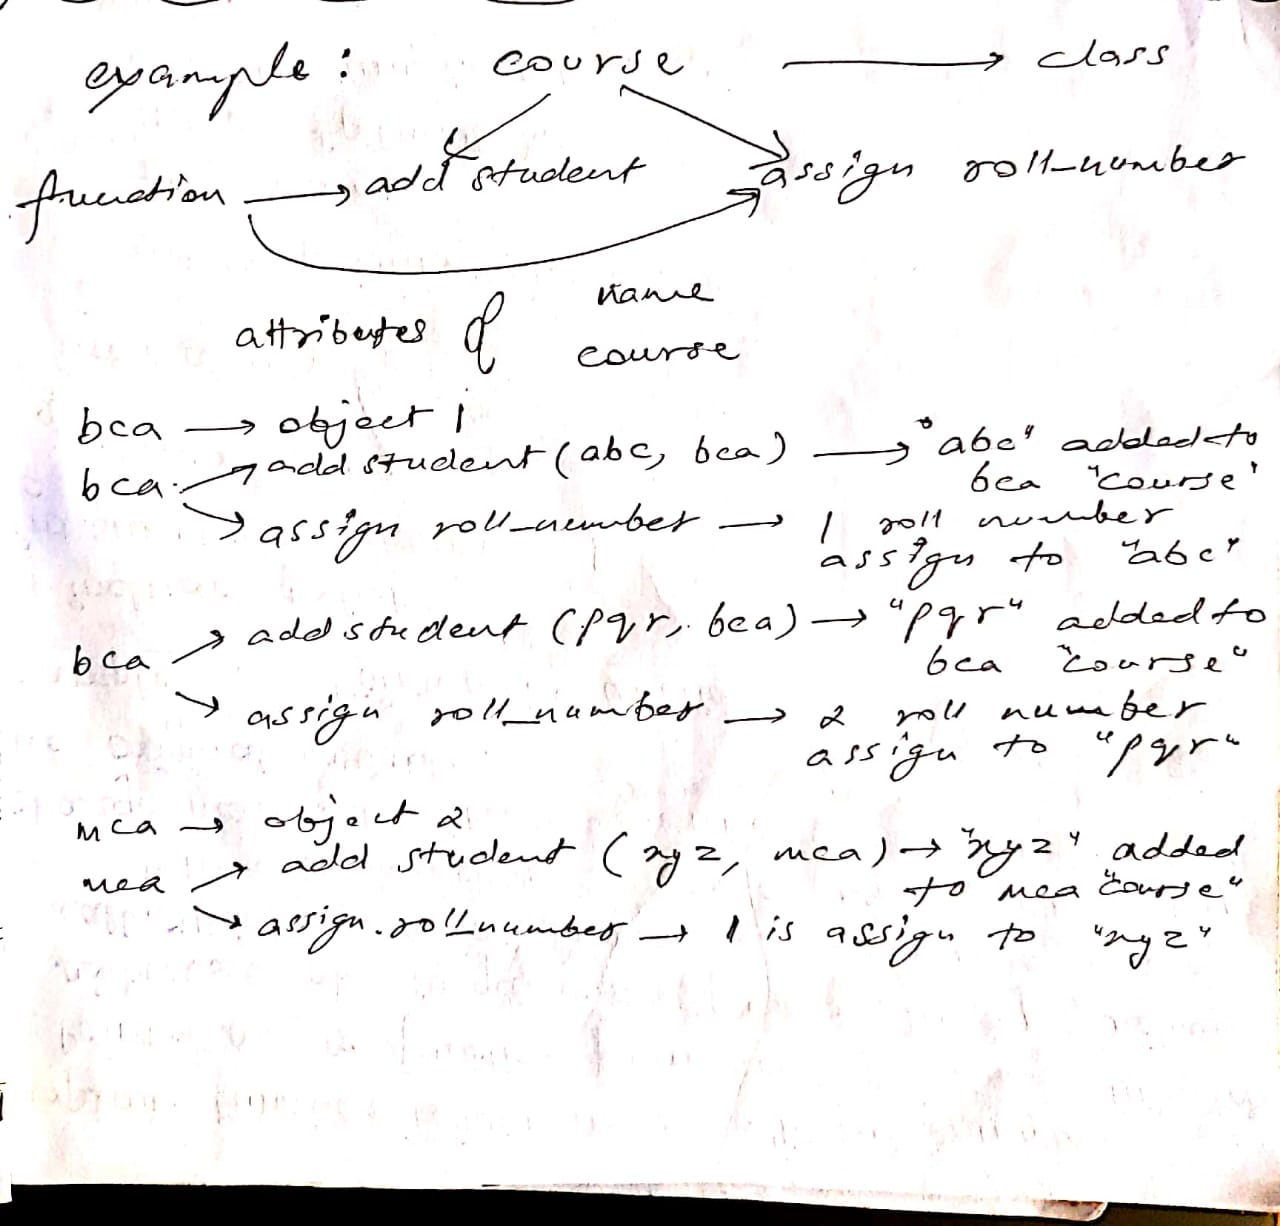 example : course → class
function → add student assign roll-number
name
attributes of
course
bca → object 1
bca. → add student (abc, bca) → "abc" added to
bca "course'
→ assign roll-number → 1 roll number
assign to "abc"
bca → add student (pqr, bca) → "pqr" added to
bca "course"
→ assign roll_number → 2 roll number
assign to "pqr"
mca → object 2
mca → add student (xyz, mca) → "xyz" added
to mca "course"
→ assign.roll_number → 1 is assign to "xyz"